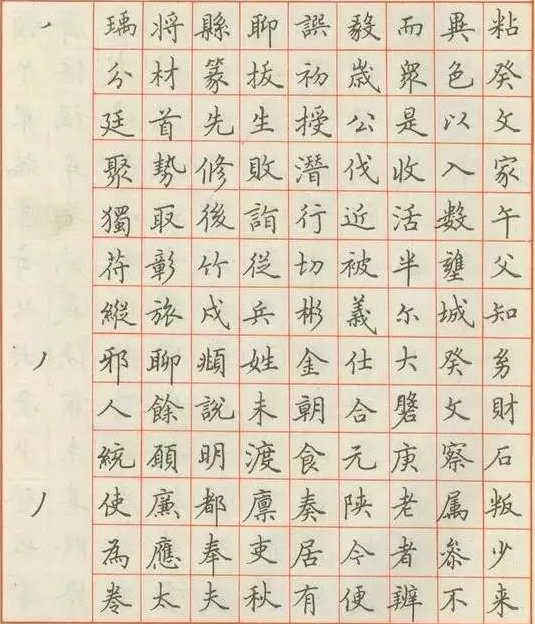 粘癸文家午父知幼財石叛少来
異色以入数壟城癸文察属叅不
而衆是收活半尓大磐庚老者辨
毅歲公伐近被義仕合元陝今便
誤初授潜行切彬金朝食奏居有
聊拔生敗詣從兵姓未渡廪吏秋
縣篆先修後竹戍頫說明都奉夫
將材首勢取彰旅聊餘願廉應太
瑀分廷聚獨苻縱邪人統使為卷